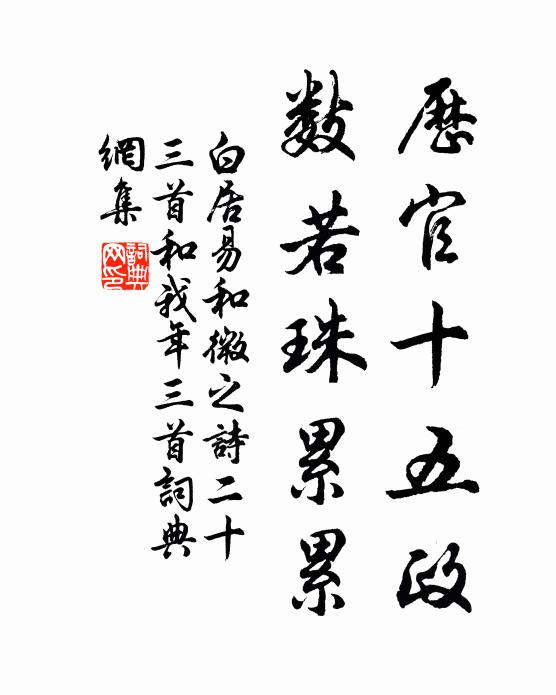 歷官十五政
數若珠累累
白居易和微之詩二十
三首和我年三首詞典
網集
詞典
网印